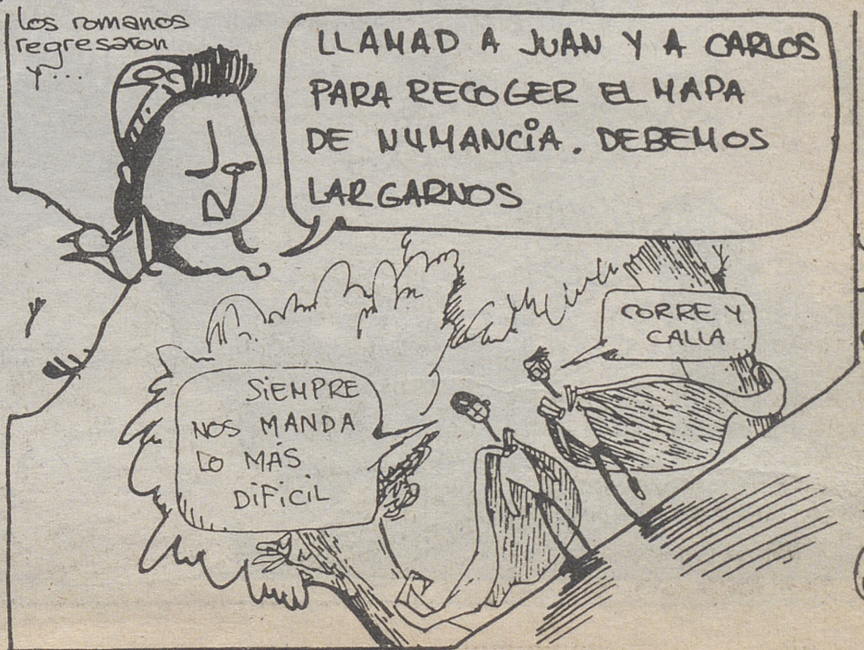 los romanos
regresaron
y...
LLAMAD A JUAN Y A CARLOS
PARA RECOGER EL MAPA
DE NUMANCiA. DEBEMOS
LARGARNOS
CORRE Y
CALLA
SiEMPRE
NOS MANDA
LO MÁS
DiFiCiL